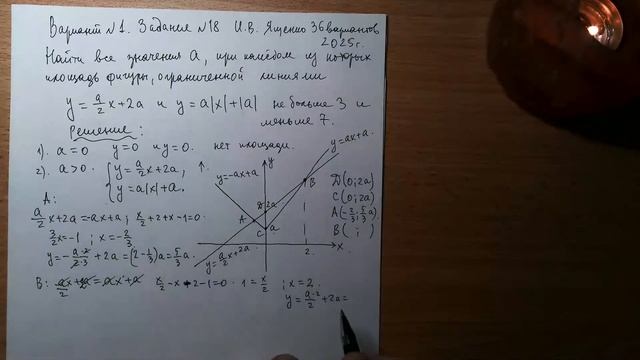 Вариант №1. Задание №18 И.В. Ященко 36 вариантов
2025г.
Найти все значения a, при каждом из которых
площадь фигуры, ограниченной линиями
y = a/2 x + 2a и y = a|x| + |a| не больше 3 и
меньше 7.
Решение:
1). a = 0 y = 0 и y = 0. нет площади.
2). a > 0. { y = a/2 x + 2a, ↑.
y = a|x| + a.
A:
a/2 x + 2a = -ax + a; x/2 + 2 + x - 1 = 0.
3/2 x = -1; x = -2/3
y = -a·2/2·3 + 2a = (2 - 1/3)a = 5/3 a.
B: a/2 x + 2a = ax + a x/2 - x + 2 - 1 = 0 · 1 = x/2 ; x = 2.
y = a·2/2 + 2a =
y = -ax + a
y
y = ax + a.
A
D 2a
B
C
a
2.
x.
y = a/2 x + 2a
D (0; 2a)
C (0; 2a)
A (-2/3; 5/3 a)
B ( ; )